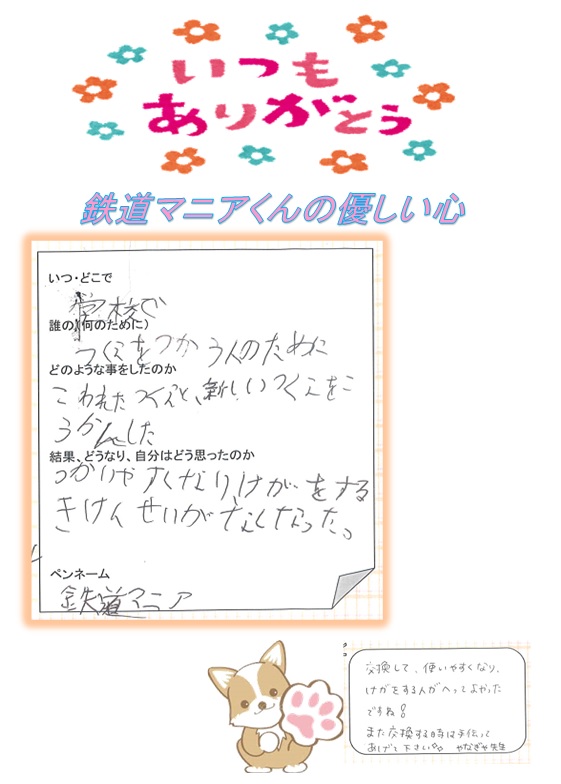 いつも
ありがとう
鉄道マニアくんの優しい心
いつ・どこで
学校で
誰の(何のために)
つくえをつかう人のために
どのような事をしたのか
こわれたつくえと、新しいつくえをこ
うかんした
結果、どうなり、自分はどう思ったのか
つかいやすくなり、けがをする
きけんせいがなくなった。
ペンネーム
鉄道マニア
交換して、使いやすくなり、
けがをする人がへってよかった
ですね!
また交換する時は手伝って
あげて下さい。 やなぎや先生